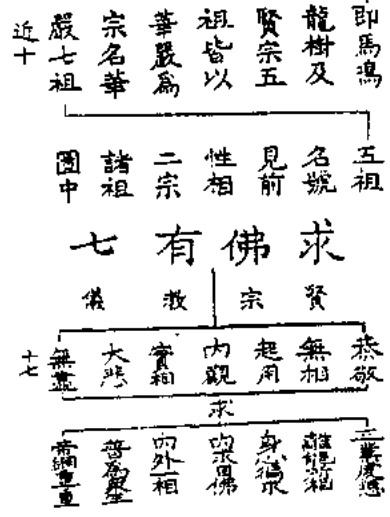 即馬鳴
龍樹及
賢宗五
祖皆以
華嚴為
宗名華
嚴七祖
近十
五祖
名號
見前
性相
二宗
諸祖
圖中
求佛有七
賢宗教儀
恭敬
無相
起用
內觀
實相
大悲
無盡
十七
求
三業虔
離能所相
身求
內求自佛
內外一相
普為眾生
帝網重重